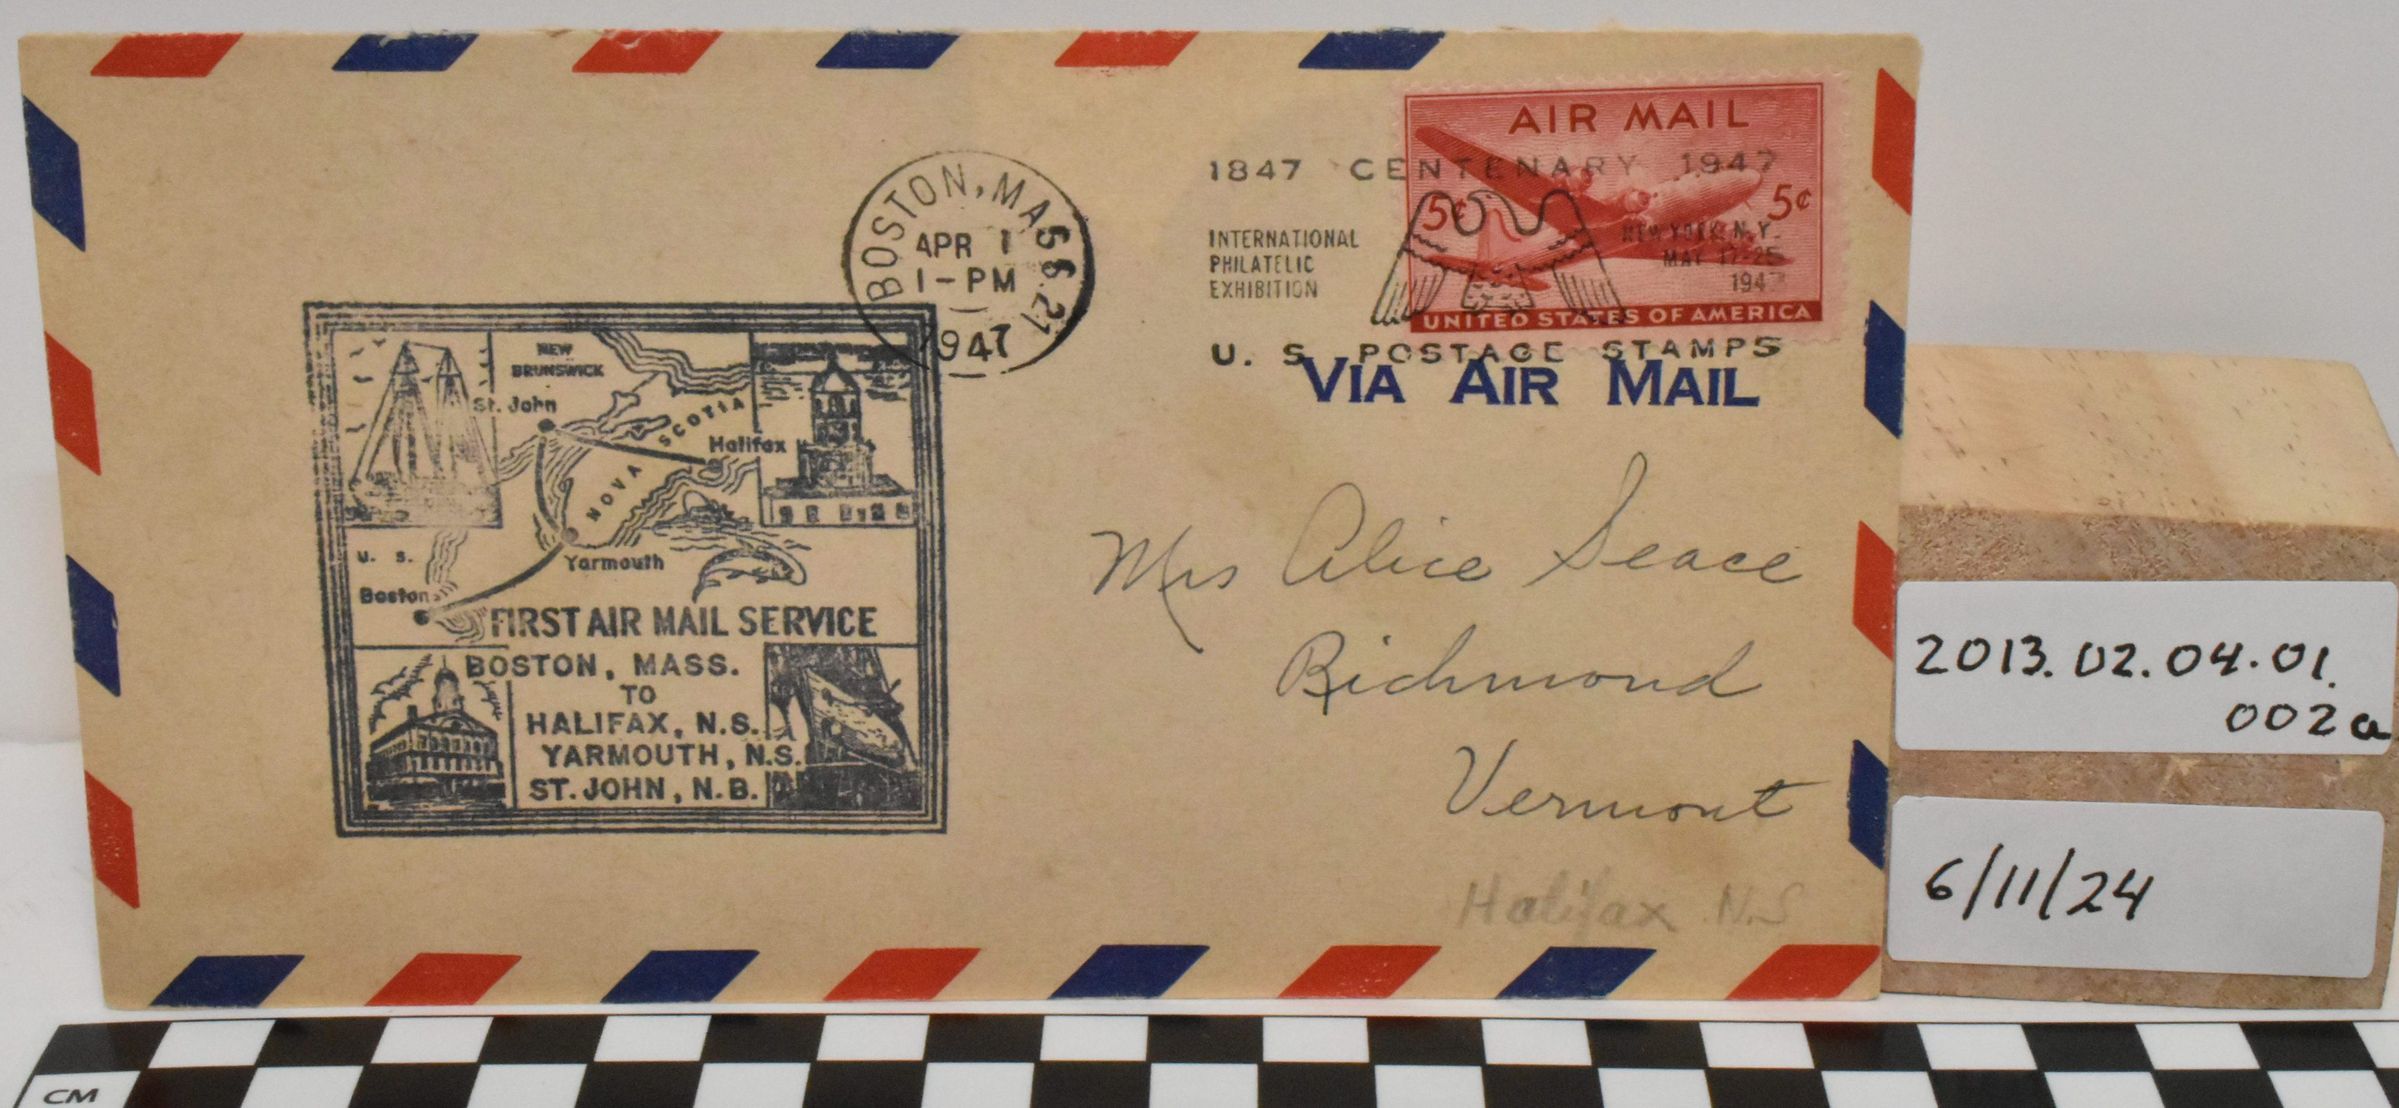 AIR MAIL
5¢ 5¢
UNITED STATES OF AMERICA
BOSTON, MASS. 21
APR 1
1-PM
1947
1847 CENTENARY 1947
INTERNATIONAL
PHILATELIC
EXHIBITION
NEW YORK, N.Y.
MAY 17-25
1947
U. S. POSTAGE STAMPS
VIA AIR MAIL
NEW
BRUNSWICK
St. John
NOVA SCOTIA
Halifax
U. S.
Yarmouth
Boston
FIRST AIR MAIL SERVICE
BOSTON, MASS.
TO
HALIFAX, N.S.
YARMOUTH, N.S.
ST. JOHN, N.B.
Mrs Alice Seace
Richmond
Vermont
Halifax N.S
2013.02.04.01.
002a
6/11/24
CM